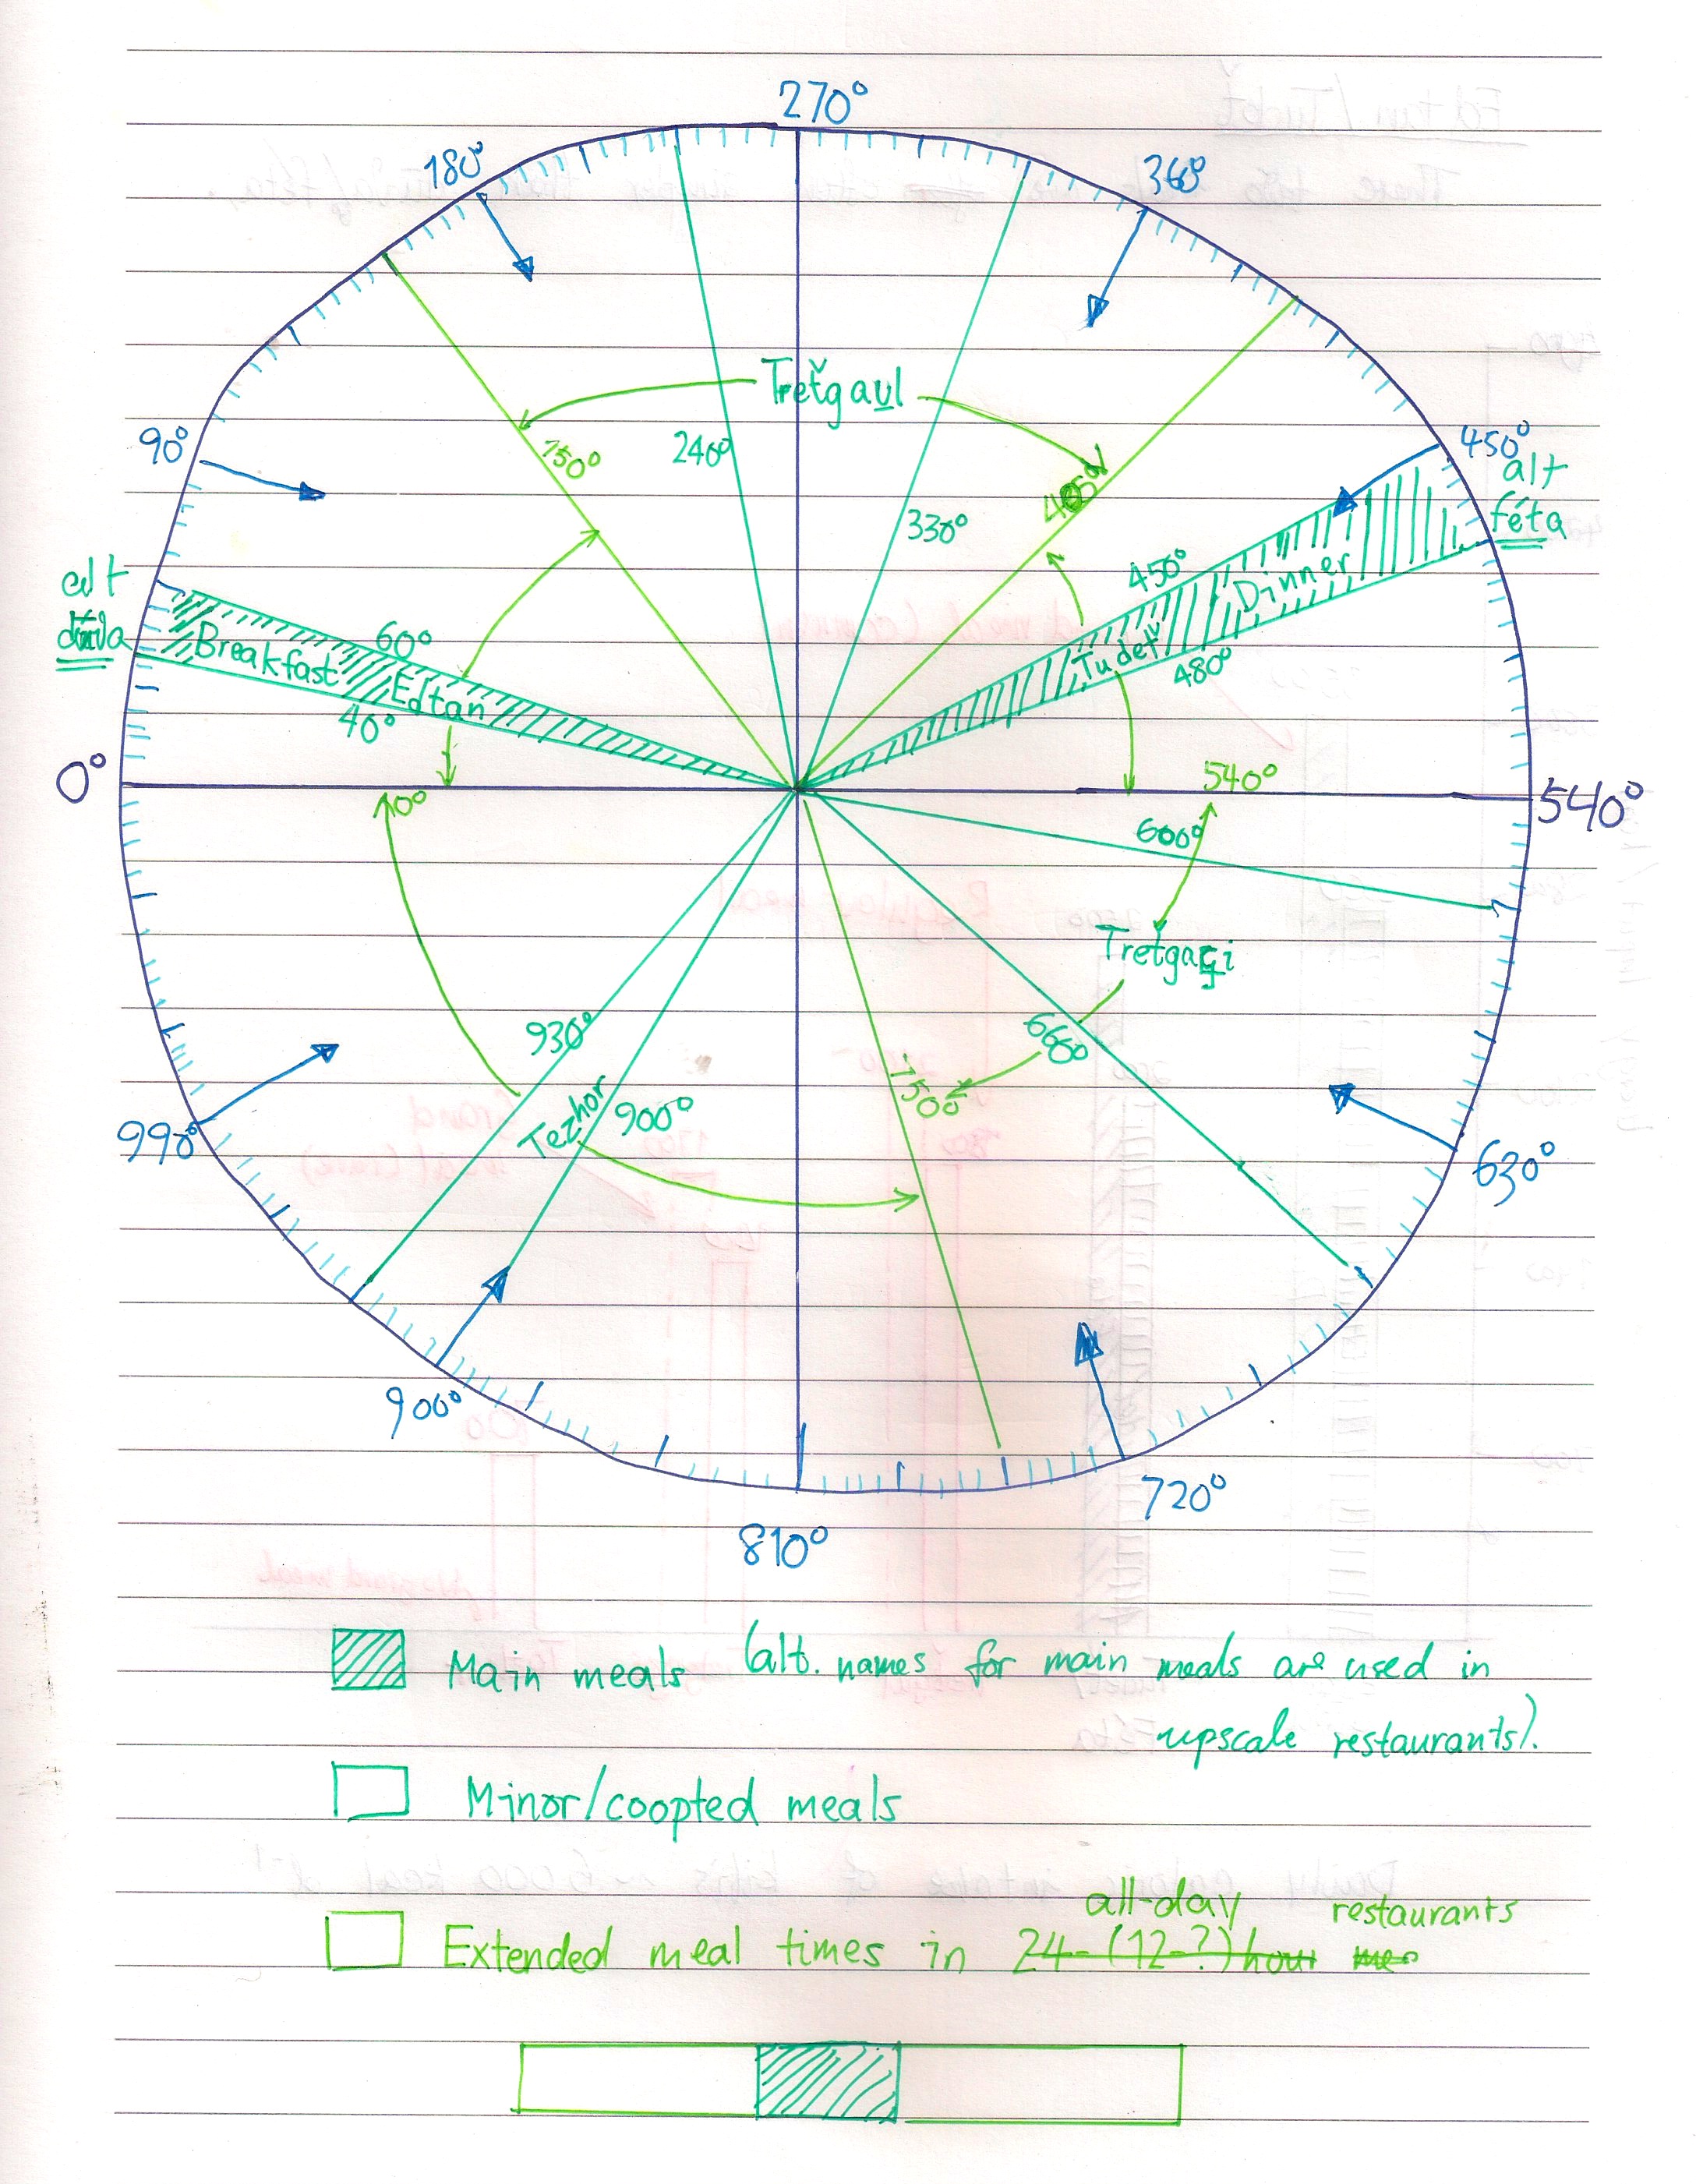 270°
180°
360°
90°
450°
alt
féta
Treťgaul
150°
240°
330°
405°
450°
Dinner
Tudeť
480°
alt
Breakfast
60°
Edtan
40°
0°
0°
540°
540°
600°
Treťgaçi
660°
750°
930°
Tezhor
900°
990°
630°
900°
720°
810°
Main meals (alt. names for main meals are used in
upscale restaurants).
Minor/coopted meals
all-day restaurants
Extended meal times in 24-(12-?)hour